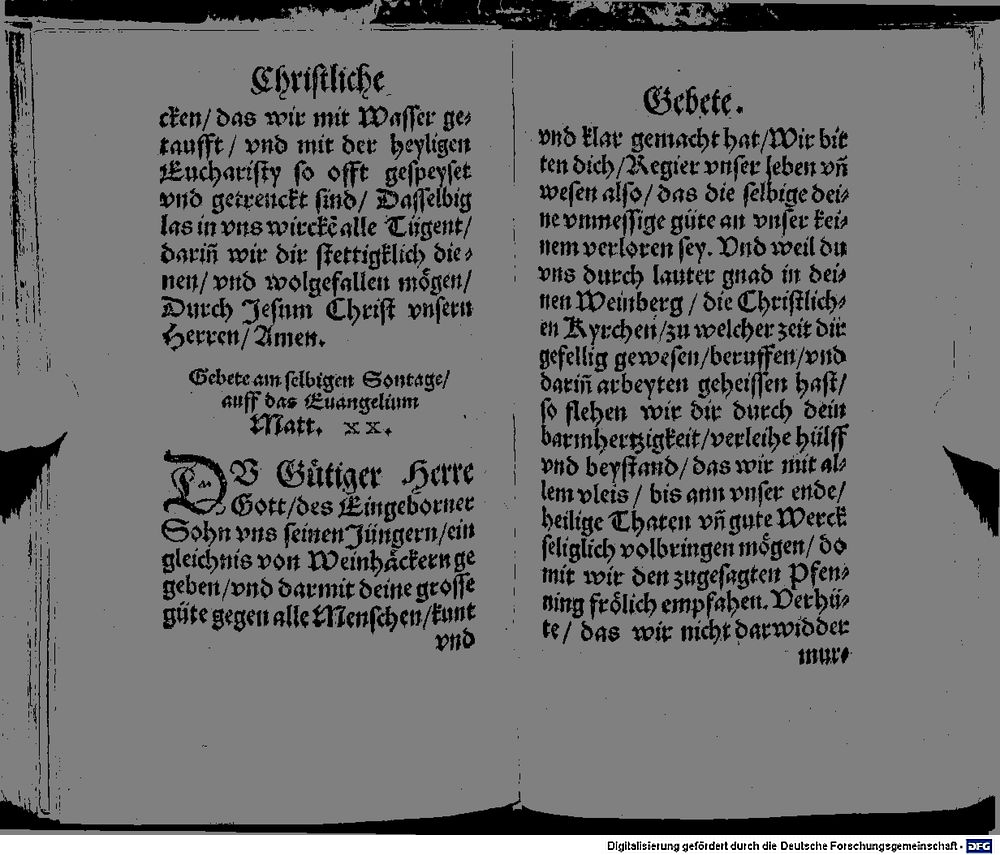 Christliche
cken/ das wir mit Wasser ge⸗
taufft / vnd mit der heyligen
Eucharisty so offt gespeyset
vnd getrenckt sind/ Dasselbig
las in vns wirckẽ alle Tügent/
dariñ wir dir stettigklich die⸗
nen/ vnd wolgefallen mögen/
Durch Jesum Christ vnsern
Herren/ Amen.
Gebete am selbigen Sontage/
auff das Euangelium
Matt. xx.
DV Gütiger Herre
Gott/des Eingeborner
Sohn vns seinen Jüngern/ein
gleichnis von Weinhäckern ge
geben/vnd darmit deine grosse
güte gegen alle Menschen/kunt
vnd
Gebete.
vnd klar gemacht hat/Wir bit
ten dich/Regier vnser leben vñ
wesen also/ das die selbige dei⸗
ne vnmessige güte an vnser kei⸗
nem verloren sey. Vnd weil du
vns durch lauter gnad in dei⸗
nen Weinberg / die Christlich⸗
en Kyrchen/zu welcher zeit dir
gefellig gewesen/beruffen/vnd
dariñ arbeyten geheissen hast/
so flehen wir dir durch dein
barmhertzigkeit/verleihe hülff
vnd beystand/ das wir mit al⸗
lem vleis / bis ann vnser ende/
heilige Thaten vñ gute Werck
seliglich volbringen mögen/ do
mit wir den zugesagten Pfen⸗
ning frölich empfahen. Verhü⸗
te/ das wir nicht darwidder
mur⸗
Digitalisierung gefördert durch die Deutsche Forschungsgemeinschaft - DFG